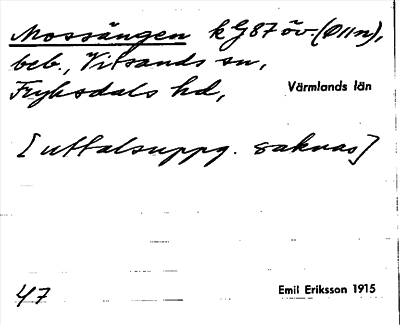 Mossängen kG87öv.(Ø11n),
beb., Vitsands sn,
Fryksdals hd, Värmlands län
[uttalsuppg. saknas]
47 Emil Eriksson 1915